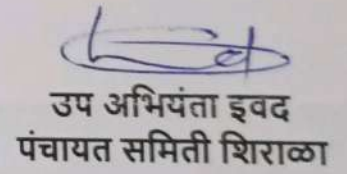 उप अभियंता इवद
पंचायत समिती शिराळा